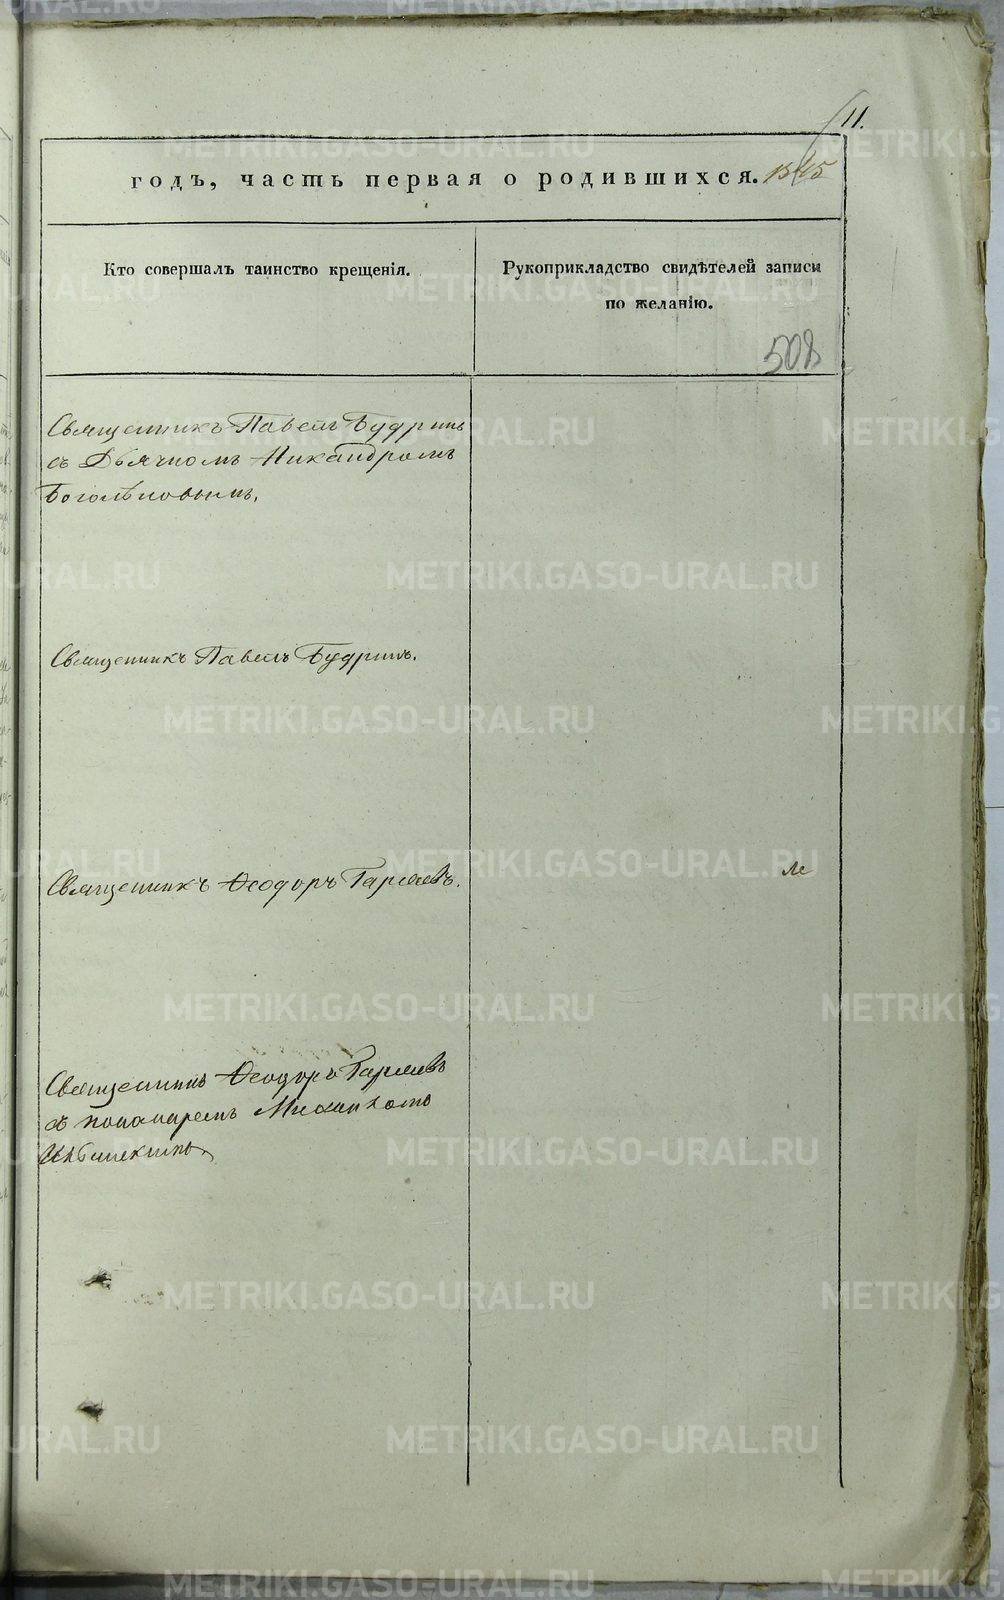 11.
годъ, часть первая о родившихся.
Кто совершалъ таинство крещенія.
Рукоприкладство свидѣтелей записи
по желанію.
508
Священникъ Павелъ Будринъ
съ Дьячкомъ Никандромъ
Священникъ Павелъ Будринъ.
Священникъ Ѳеодоръ
Священникъ Ѳеодоръ
съ пономаремъ
METRIKI.GASO-URAL.RU